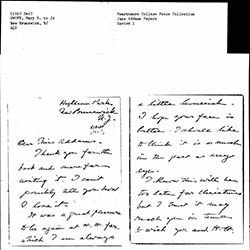 (1910 Dec)
SWIFT, Mary H. to JA
New Brunswick, NJ
ALS
Swarthmore College Peace Collection
Jane Addams Papers
Series 1
Highland Park
New Brunswick
N.J.
Dear Miss Addams.
Thank you for the
book and more for
writing it. I can't
possibly tell you how
I love it.
It was a great pleasure
to be again at H.H. for
which I am always
a little homesick.
I hope your face is
better. I should like
to think it is as much
in the past as my
eye.
I know this will have
too late for Christmas
but I trust it may
reach you in time
to wish you and H.H.